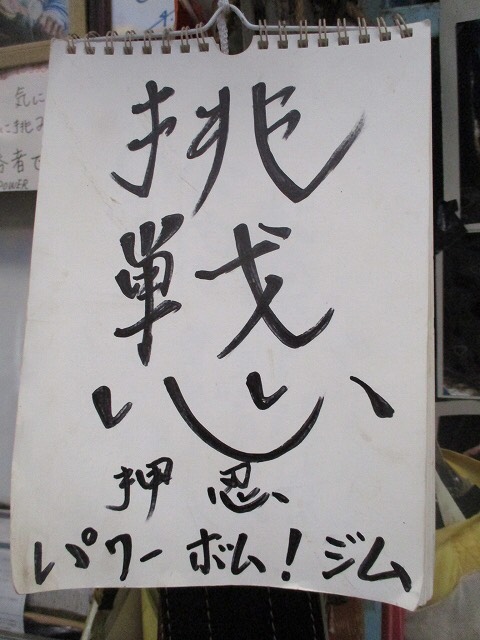 挑
戦
心
押忍
パワーボム!ジム
気に
に挑み
者で
POWER